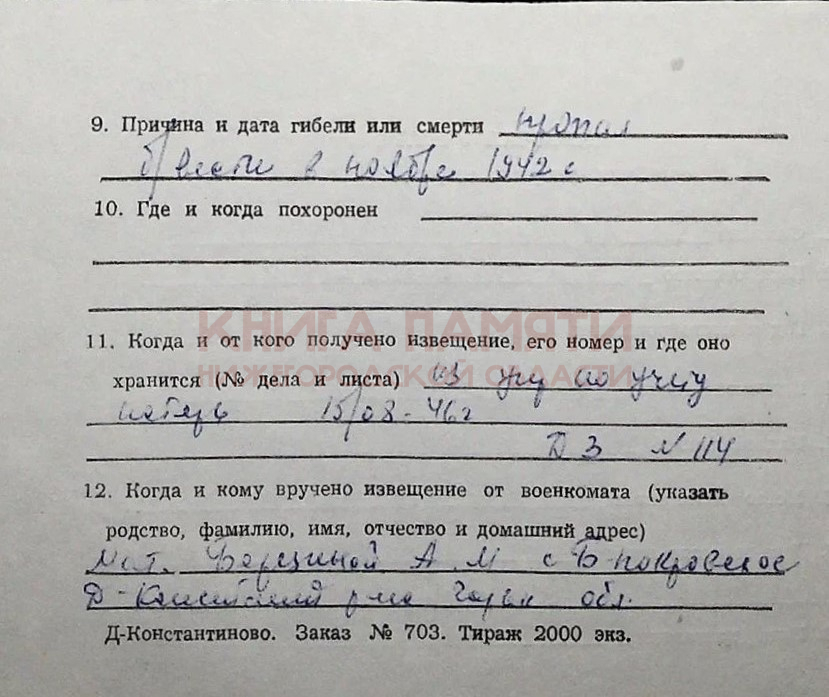 9. Причина и дата гибели или смерти пропал
б/вести в ноябре 1942 г
10. Где и когда похоронен
КНИГА ПАМЯТИ
11. Когда и от кого получено извещение, его номер и где оно
НИЖЕГОРОДСКОЙ ОБЛАСТИ
хранится (№ дела и листа) из упр по учету
потерь 15/08-46г
Д 3 N 114
12. Когда и кому вручено извещение от военкомата (указать
родство, фамилию, имя, отчество и домашний адрес)
Мат. А М с Б-покровское
Д-Конст р-на Горьк обл.
Д-Константиново. Заказ № 703. Тираж 2000 экз.